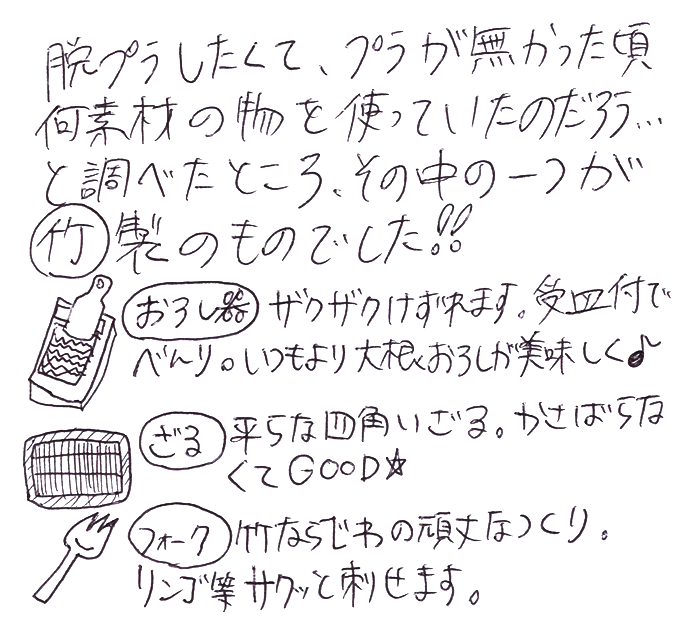 脱プラしたくて、プラが無かった頃
何素材の物を使っていたのだろう…
と調べたところ、その中の一つが
竹製のものでした!!
おろし器 ザクザクけずれます。受皿付で
べんり。いつもより大根おろしが美味しく♪
ざる 平らな四角いざる。かさばらな
くてGOOD☆
フォーク 竹ならではの頑丈なつくり。
リンゴ等サクッと刺せます。